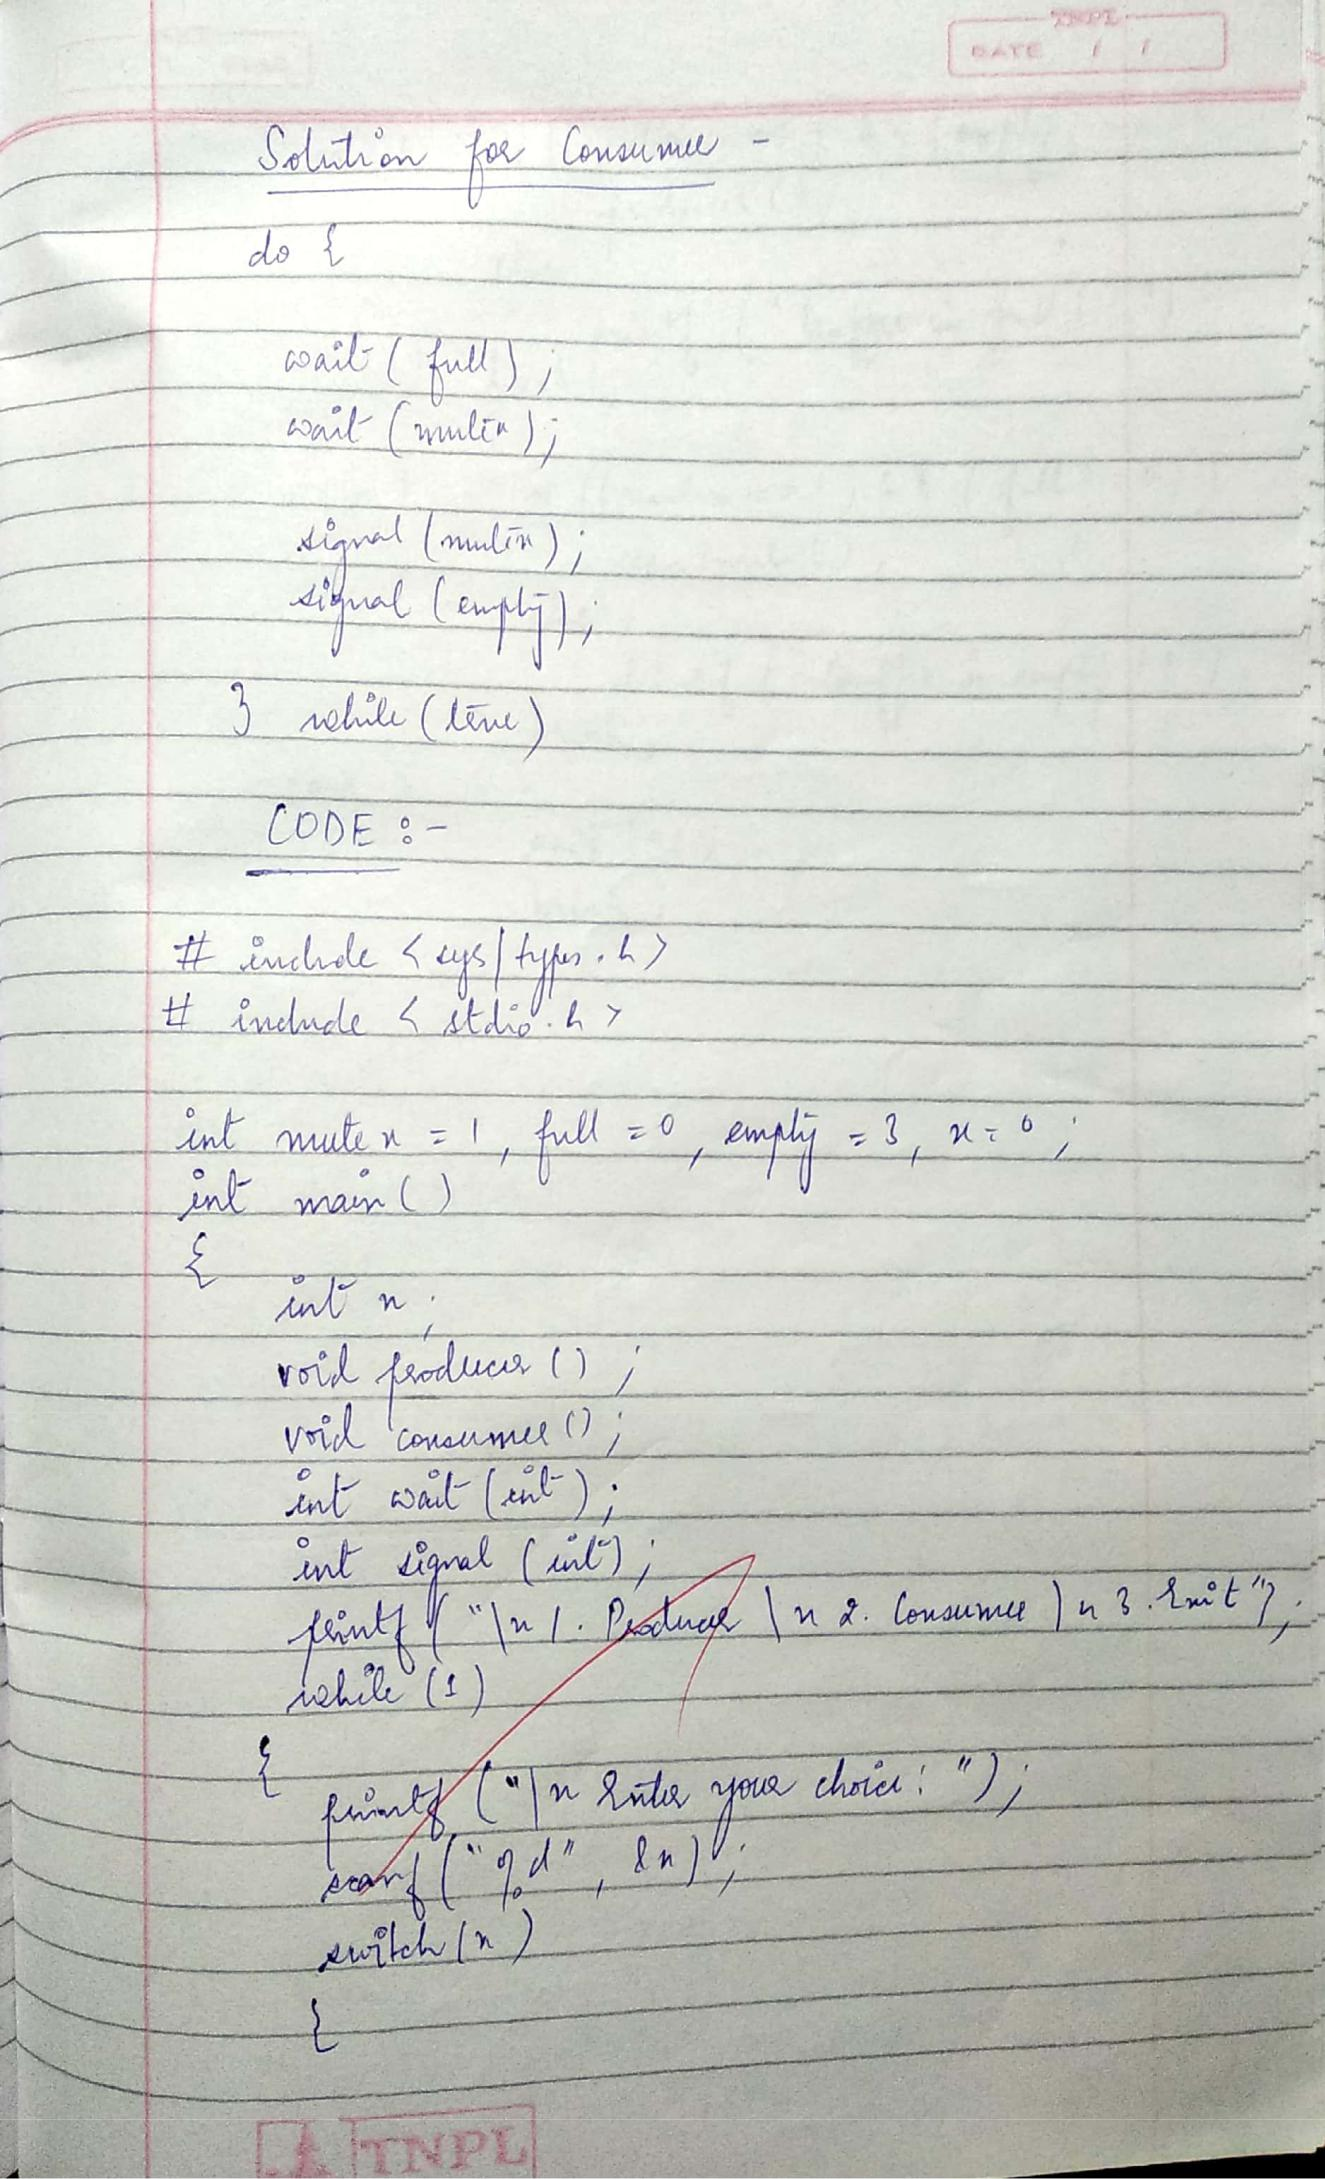 TNPL
DATE / /
Solution for Consumer -
do {
wait ( full ) ;
wait (mutex) ;
signal (mutex) ;
signal (empty) ;
} while (true)
CODE :-
# include < sys/types.h >
# include < stdio.h >
int mutex = 1, full = 0, empty = 3, x = 0 ;
int main ( )
{
int n ;
void producer ( ) ;
void consumer ( ) ;
int wait (int) ;
int signal (int) ;
printf ("\n 1. Producer \n 2. Consumer \n 3. Exit") ;
while (1)
{
printf ("\n Enter your choice : ") ;
scanf ("%d" , &n) ;
switch (n)
{
TNPL